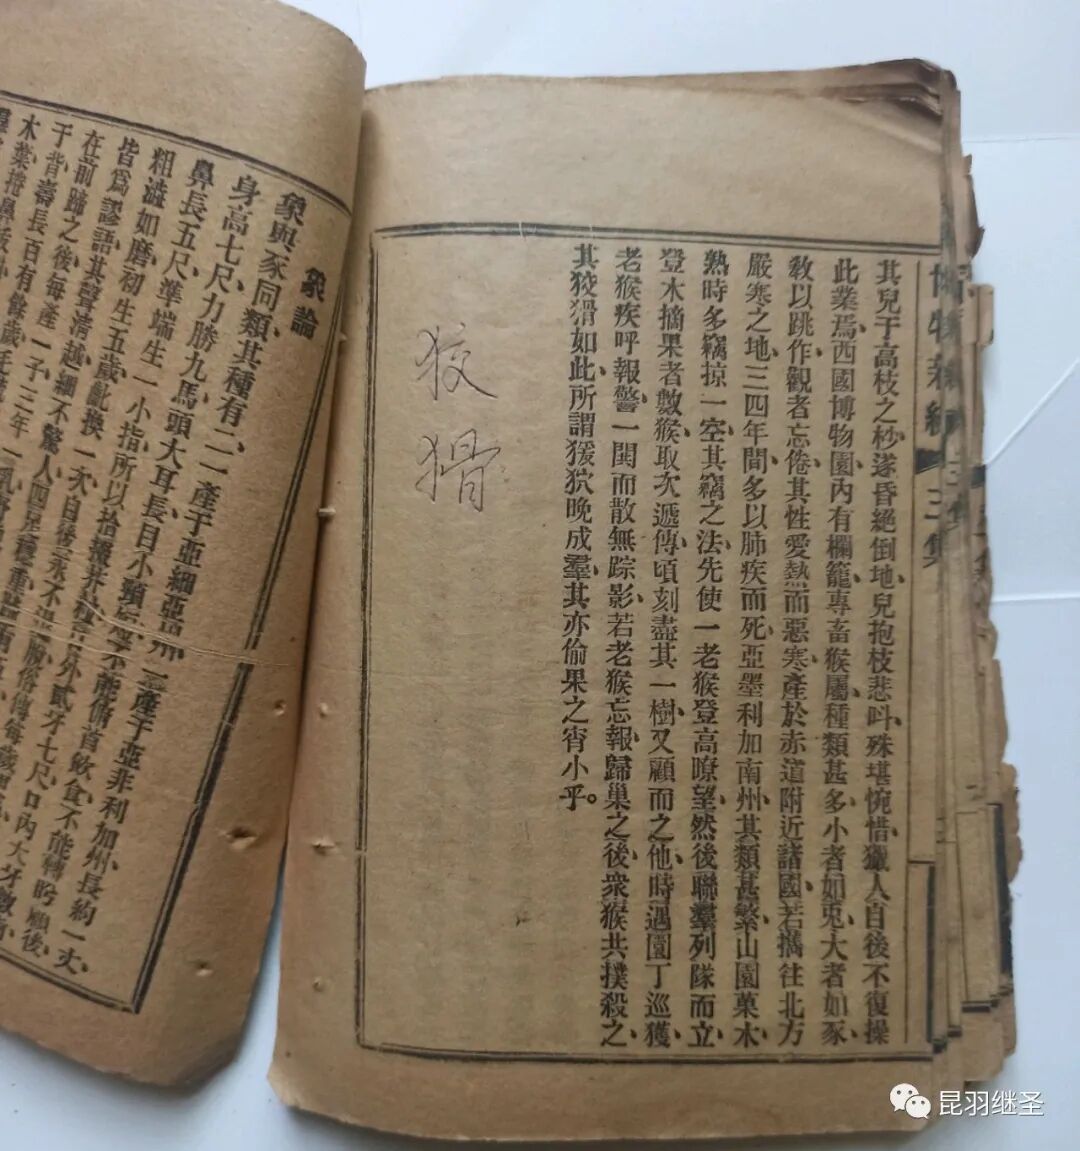 其兒于高枝之杪、遂昏絕倒地、兒抱枝悲叫、殊堪惋惜、獵人自後不復操
此業焉、西國博物園內有欄籠、專畜猴屬、種類甚多、小者如兎、大者如豕、
敎以跳作、觀者忘倦、其性愛熱而惡寒、產於赤道附近諸國、若攜往北方
嚴寒之地、三四年間、多以肺疾而死、亞墨利加南州、其類甚繁、山園菓木
熟時、多竊掠一空、其竊之法、先使一老猴登高瞭望、然後聯羣列隊而立、
登木摘果者數猴、取次遞傳、頃刻盡其一樹、又顧而之他、時遇園丁巡獲、
老猴疾呼報警、一閧而散、無踪影、若老猴忘報、歸巢之後、衆猴共撲殺之、
其狡猾如此、所謂猨狖晚成羣、其亦偷果之宵小乎。
狡猾
象論
象與豕同類、其種有二、一產于亞細亞州、一產于亞非利加州、長約一丈、
身高七尺、力勝九馬、頭大耳長、目小頸短、不能俯首飲食、不能轉盻顧後、
鼻長五尺、準端生一小指、所以拾撮芥 外貳牙七尺、口內大牙數
粗溢如磨、初生五歲、齓換一次、自後永不
皆爲謬語、其聲淸越、細不驚人、四足
在前蹄之後、每產一子、三年一乳
于背、壽長百有餘歲
木葉捲鼻
博物新編 三集
昆羽继圣